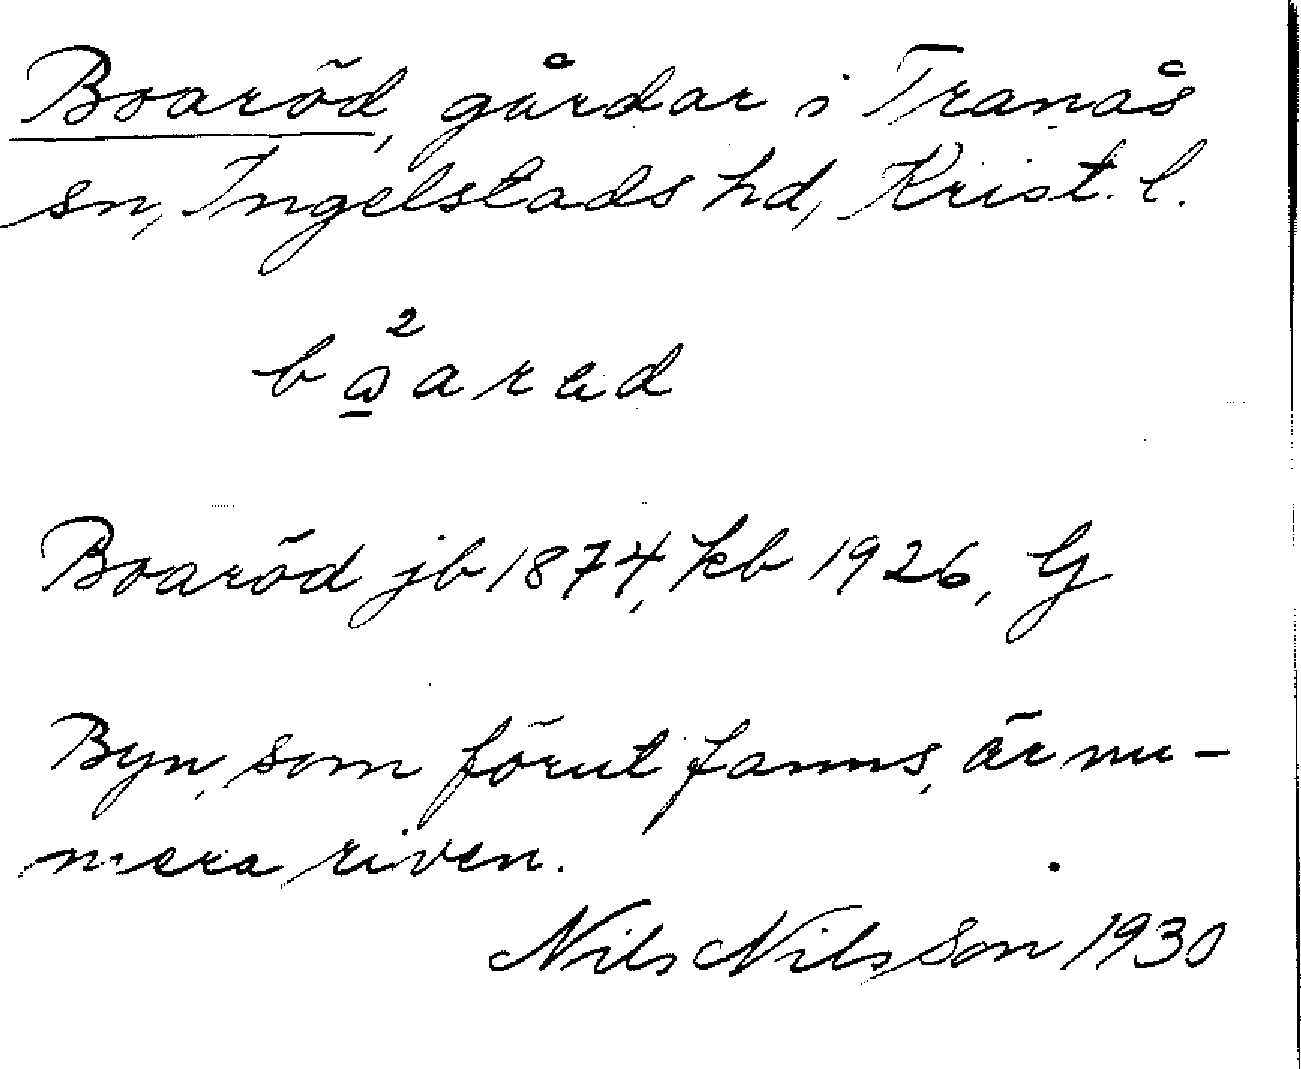 Boaröd, gårdar i Tranås
sn, Ingelstads hd, Krist. l.
Boaröd jb 1874, kb 1926, G
Byn, som förut fanns, är nu-
mera riven.
Nils Nilsson 1930